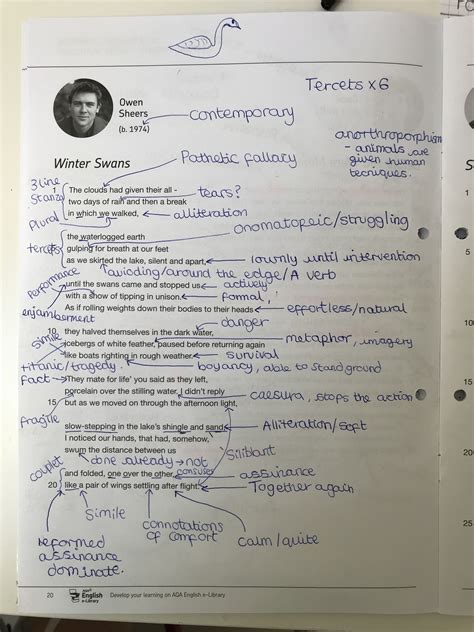 Tercets x6
Owen
Sheers
(b. 1974)
contemporary
anorthroporphism
- animals are
given human
tecniques.
Winter Swans
Pathetic fallacy
3 line
Stanza
1 The clouds had given their all -
tears?
two days of rain and then a break
in which we walked,
alliteration
Plural
onomatopeic/struggling
the waterlogged earth
tercets
gulping for breath at our feet
5
as we skirted the lake, silent and apart,
until intervention
avioding/around the edge/A verb
Performance
until the swans came and stopped us
actively
with a show of tipping in unison.
formal,
enjambement
As if rolling weights down their bodies to their heads
effortless/natural
danger
10 they halved themselves in the dark water,
Simile
icebergs of white feather, paused before returning again
metaphor, imagery
like boats righting in rough weather.
survival
titanic/tragedy
boyancy, able to stand ground
fact
'They mate for life' you said as they left,
porcelain over the stilling water. I didn't reply
caesura, stops the action
15 but as we moved on through the afternoon light,
15
fragile
slow-stepping in the lake's shingle and sand,
Alliteration/soft
I noticed our hands, that had, somehow,
swum the distance between us
Siliblant
done already → not
couplet
and folded, one over the other,
assinance
20 like a pair of wings settling after flight.
Together again
20
Simile
connotations
of comfort
calm/quite
reformed
assinance
dominate.
25
20
AQA
English
e-Library
Develop your learning on AQA English e-Library